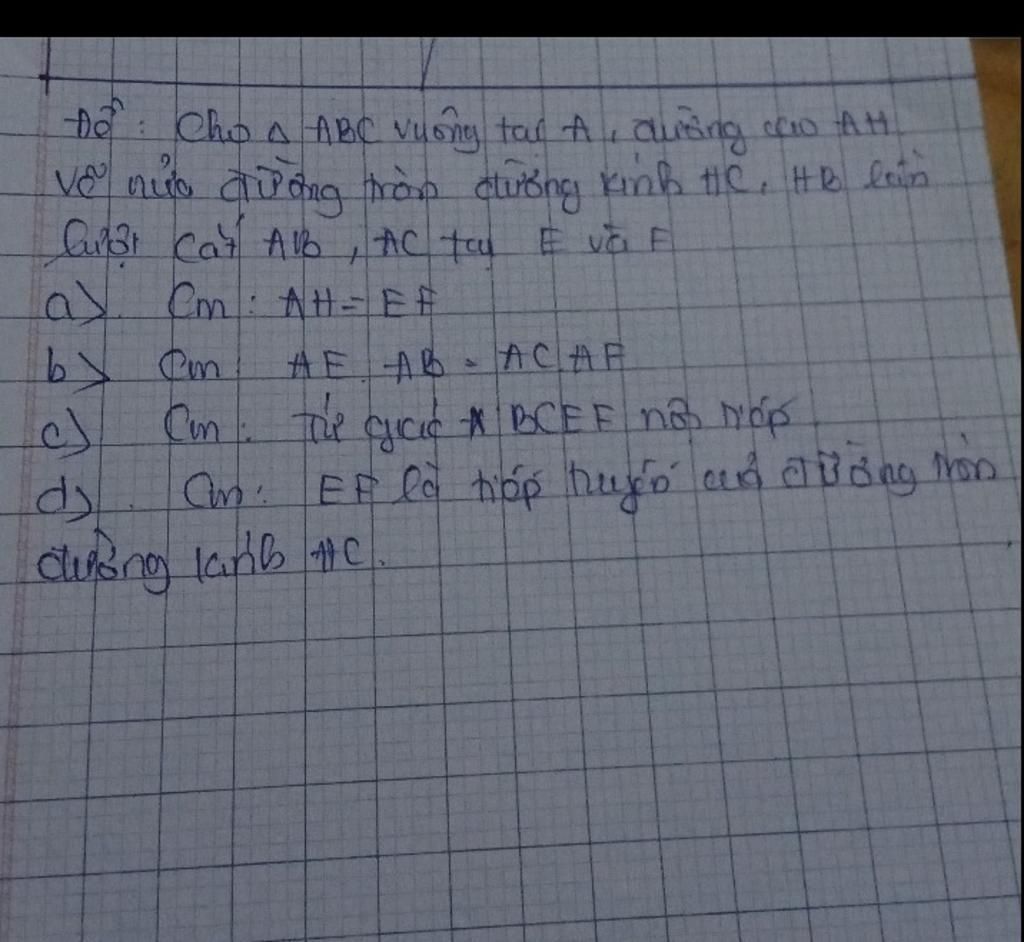 Đề: Cho Δ ABC vuông tại A, đường cao AH
vẽ nửa đường tròn đường kính HC, HB lần
lượt cắt AB, AC tại E và F
a) Cm: AH = EF
b) Cm AE. AB = AC AF
c) Cm: Tứ giác BCEF nội tiếp
d). Cm: EF là tiếp tuyến của đường tròn
đường kính HC.